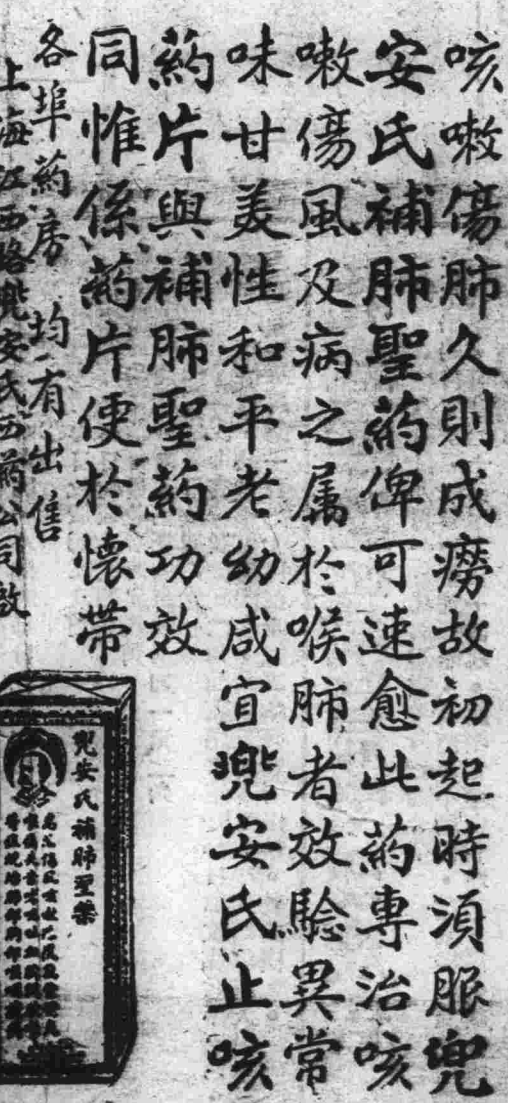 咳嗽傷肺久則成癆故初起時須服兜
安氏補肺聖葯俾可速愈此葯専治咳
嗽傷風及病之属於喉肺者效驗異常
味甘美性和平老幼咸宜兜安氏止咳
葯片與補肺聖葯功效
同惟係葯片使於懐帶
各埠葯房均有出售
上海江西路兜安氏西葯公司啟
兜安氏補肺聖藥